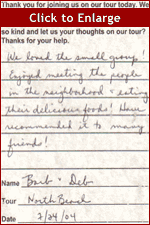 Thank you for joining us on our tour today. We
Click to Enlarge
so kind and let us your thoughts on our tour?
Thanks for your help.
We loved the small group,
Enjoyed meeting the people
in the neighborhood + eating
their delicious foods! Have
recommended it to many
friends!
Name Barb + Deb
Tour North Beach
Date 7/24/04